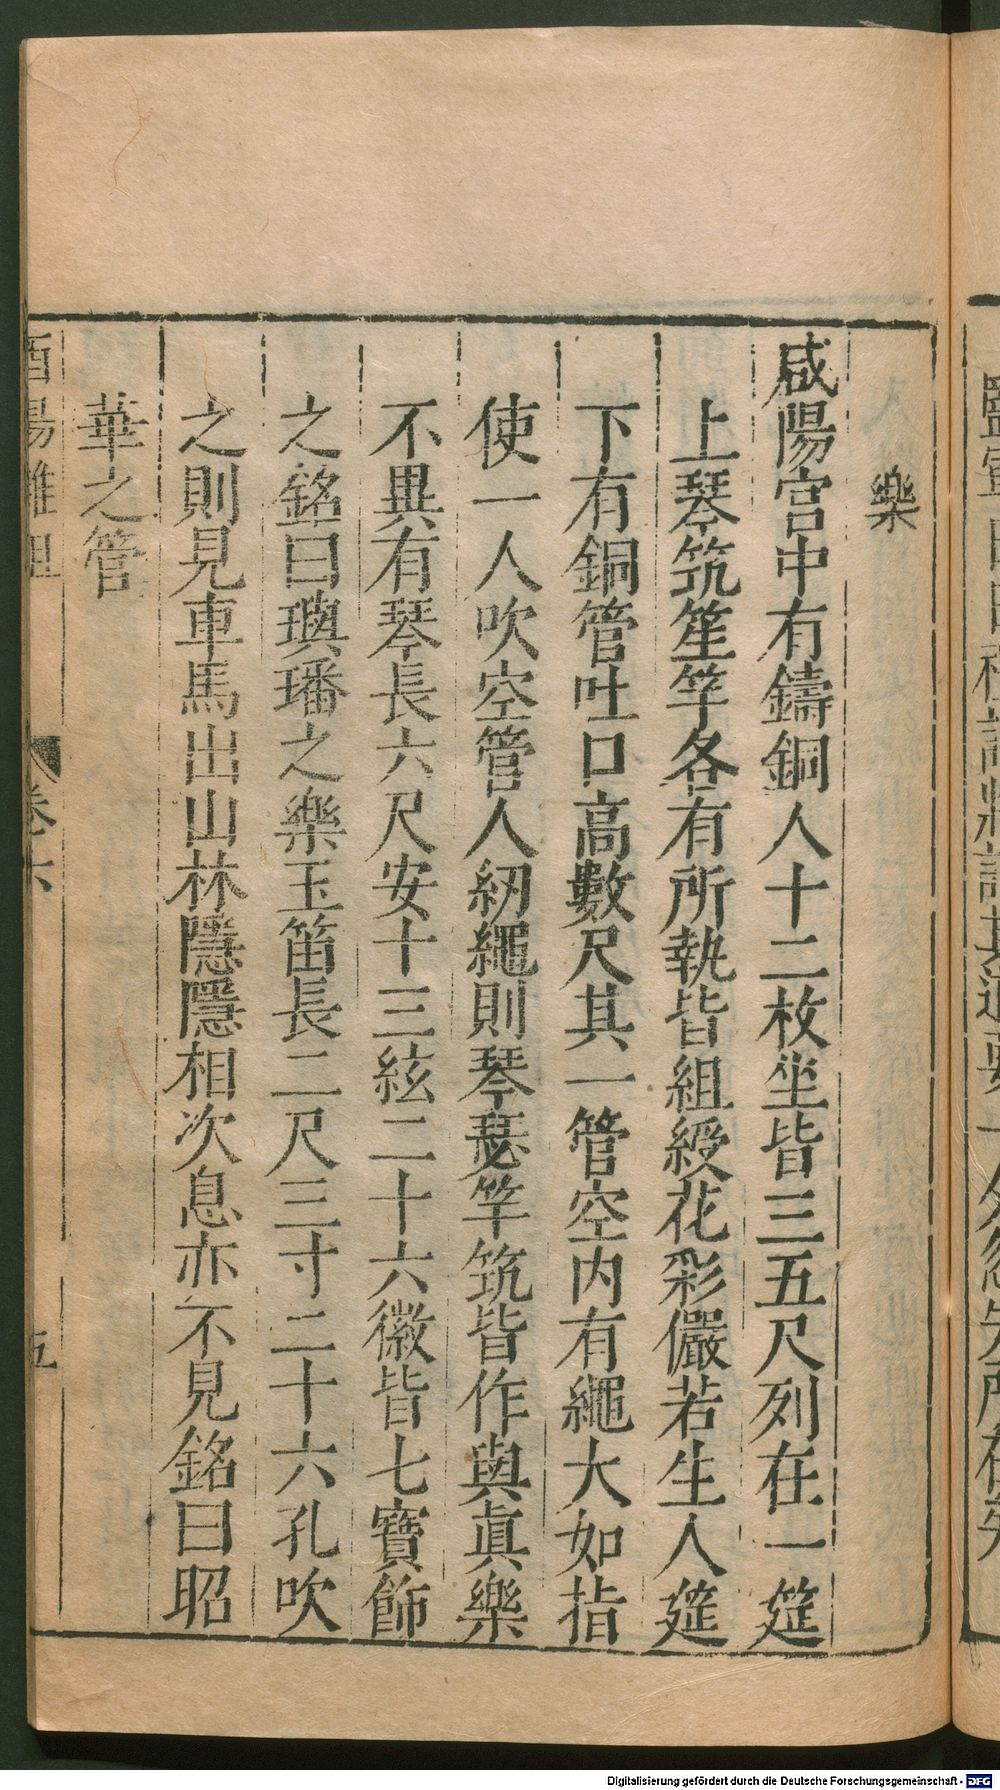 樂
咸陽宮中有鑄銅人十二枚坐皆三五尺列在一筵
上琴筑笙竽各有所執皆組綬花彩儼若生人筵
下有銅管吐口高數尺其一管空內有繩大如指
使一人吹空管一人紉繩則琴瑟竽筑皆作與真樂
不異有琴長六尺安十三絃二十六徽皆七寶飾
之銘曰璵璠之樂玉笛長二尺三寸二十六孔吹
之則見車馬出山林隱隱相次息亦不見銘曰昭
華之管
酉陽雜俎
卷六
五
Digitalisierung gefördert durch die Deutsche Forschungsgemeinschaft - DFG